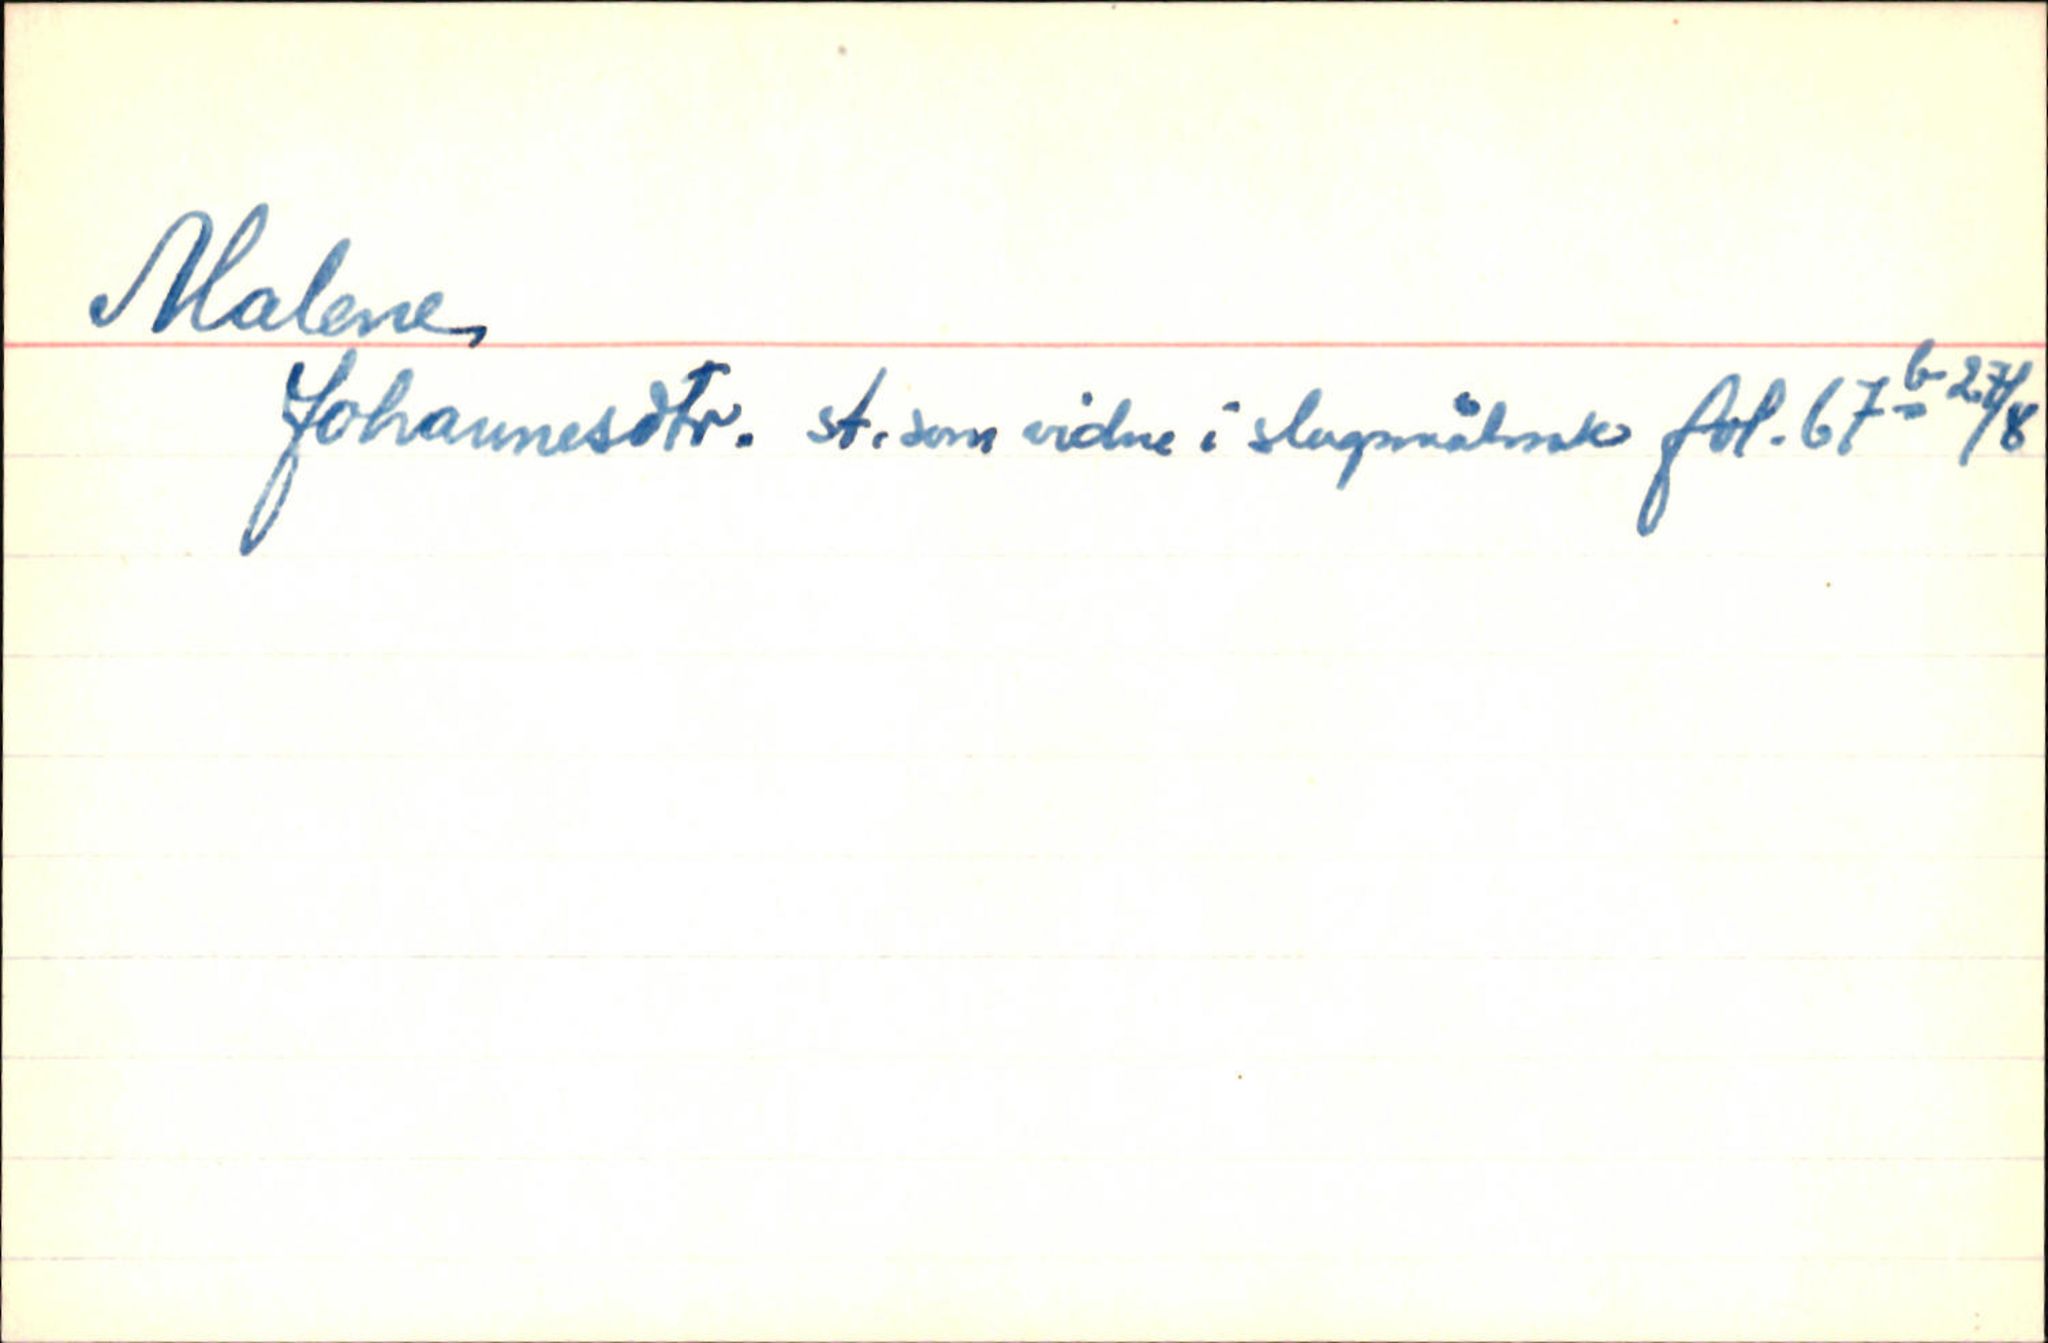 Malene,
Johannesdtr. st. som vidne i slagsmålssak fol. 67b 27/8